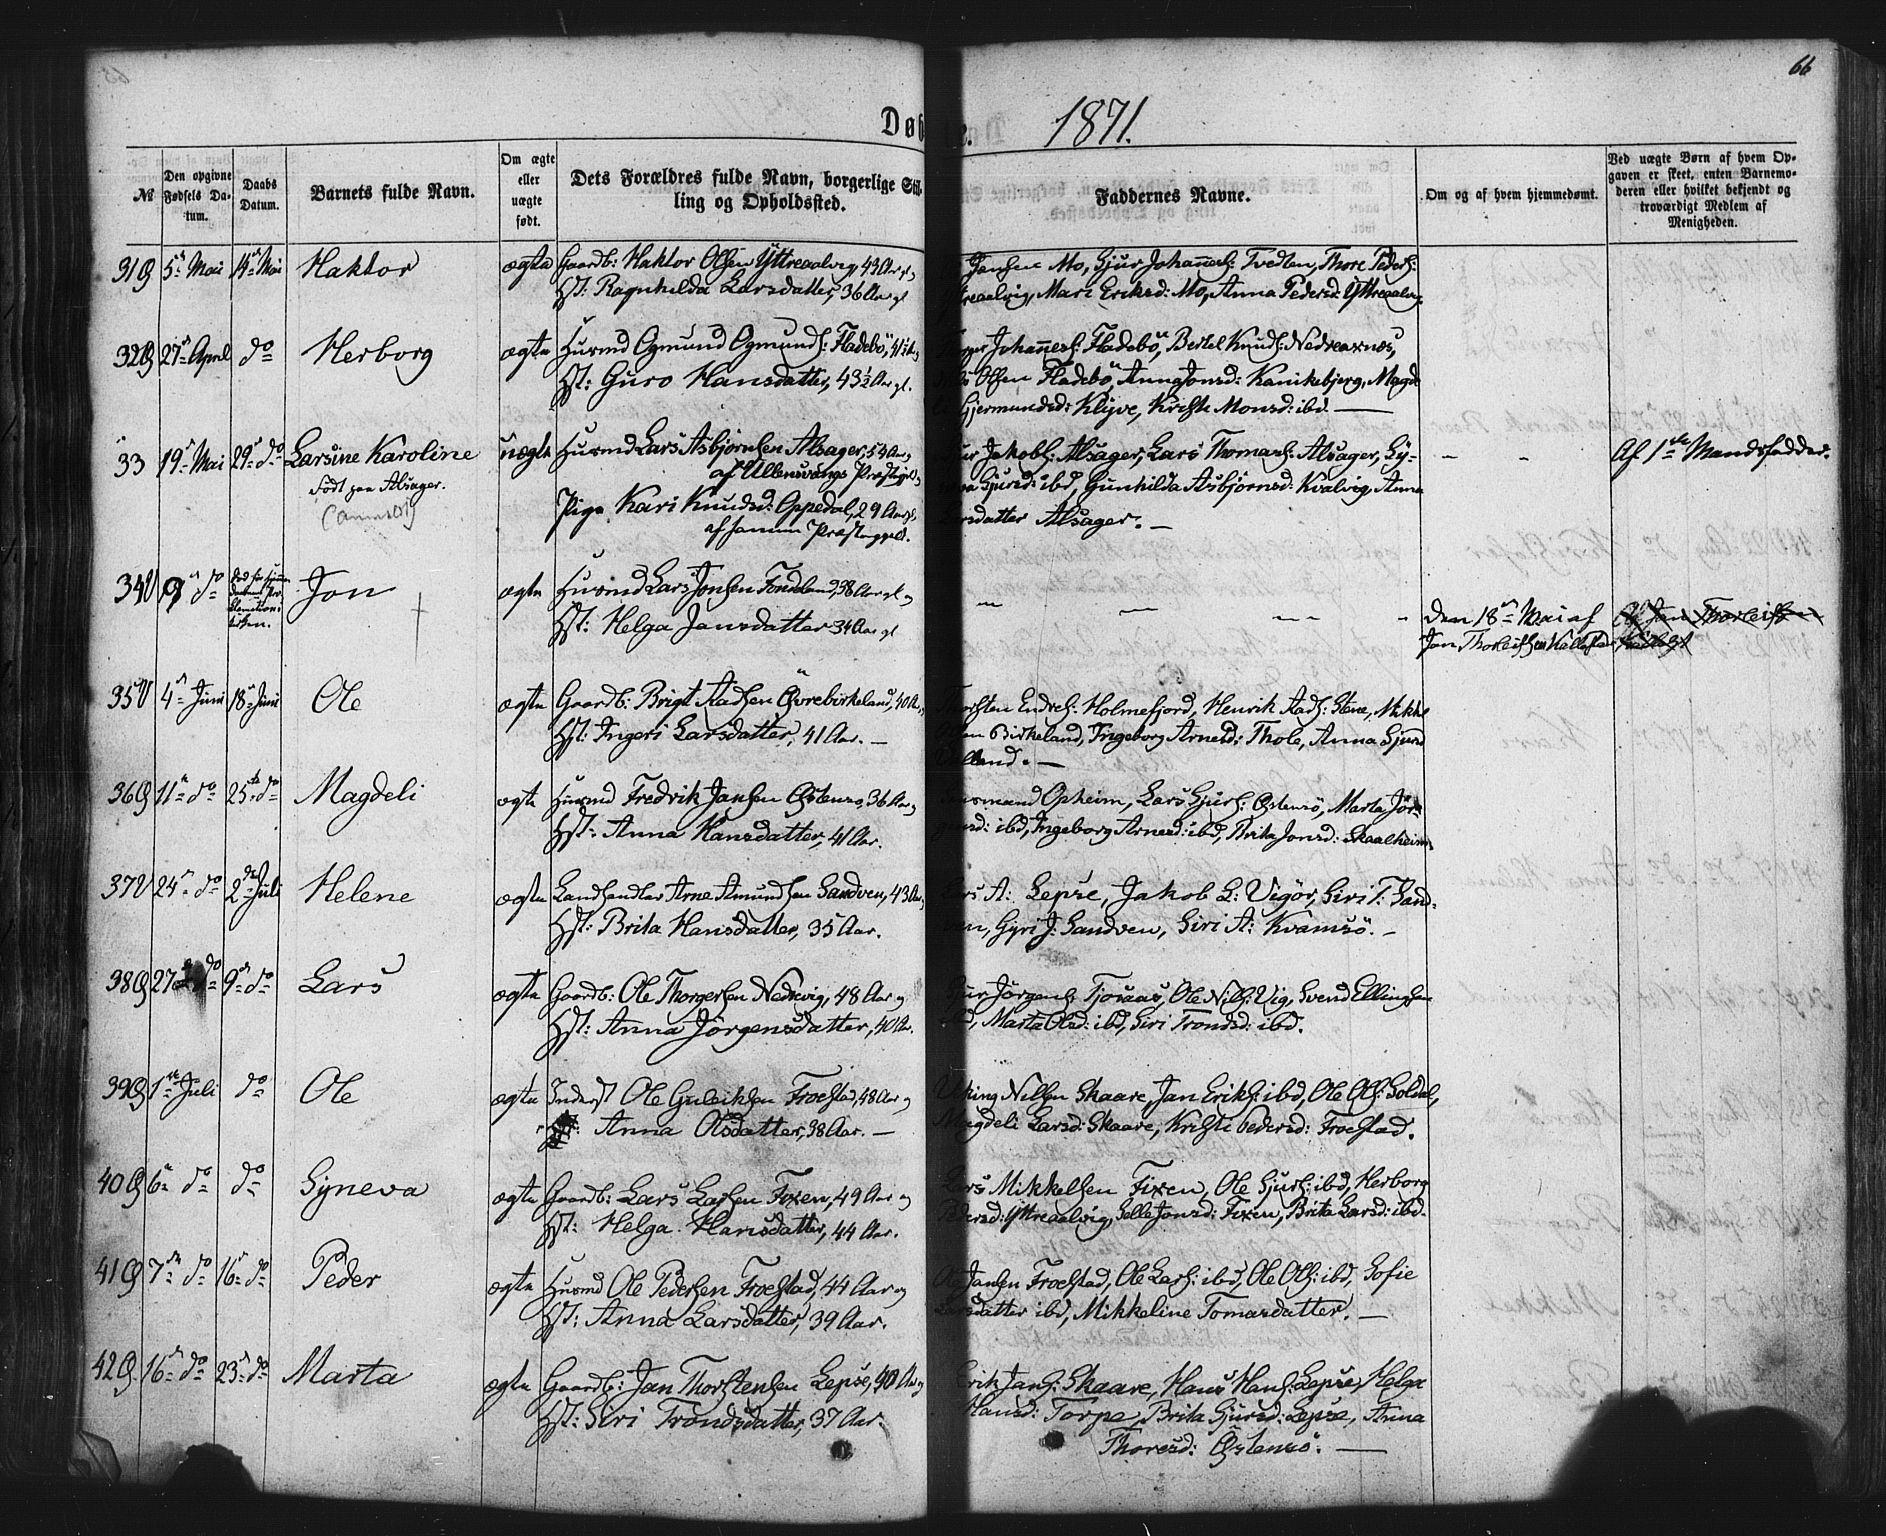 66
Døb
1871.
№
Den opgivne Fødsels Datum.
Daabs Datum.
Barnets fulde Navn.
Om ægte eller uægte født.
Dets Forældres fulde Navn, borgerlige Stilling og Opholdssted.
Faddernes Navne.
Om og af hvem hjemmedømt.
Ved uægte Børn af hvem Opgaven er skeet, enten Barnemoderen eller hvilket bekjendt og troværdigt Medlem af Menigheden.
31 5 Mai 14 Mai Haktor ægte Gaardb: Haktor Olsen Yttreaalvig, 43 Aar gl. og
Hst: Ragnhilda Larsdatter, 36 Aar gl
Jansen Mo, Sjur Johannes: Tvedten, Thore Peders:
Mari Eriksd: Mo, Anna Pedersd: Yttreaalvig.
32 27 April do Herborg ægte Husmd Ogmund Ogmunds: Fladebö, 41½ Aar
Hst: Guro Hansdatter, 43½ Aar gl.
Johannes: Fladebö, Bertel Knuds: Nedreaxnes,
Olsen Fladebö, Anna Jonsd: Kanikebjerg, Magde
Gjermundsd: Klyve, Kriste Monsd: ibd. —
33 19 Mai 29 do Larsine Karoline uægte Husmd Lars Asbjörnsen Alsager, 54 Aar,
Födt paa Alsager.
af Ullensvangs Præstegjeld,
Pige Kari Knudsd: Oppedal, 29 Aar gl.
af samme Præstegjeld.
Jakobs: Alsager, Lars Thomas: Alsager, Sy-
Sjursd: ibd, Gunhilda Asbjörnsd: Kvalvig, Anna
Larsdatter Alsager. —
Af 1ste Mandsfadder.
34 9 do Jon ægte Husmd Lars Jonsen Fondeland, 38 Aar gl og
Hst: Helga Jansdatter 34 Aar gl
Den 18 Mai af
Jon Thorleifsen
Af Jan Thorleifsen
35 4 Juni 18 Juni Ole ægte Gaardb: Brigt Aadsen Övrebirkeland, 40 Aar,
Hst: Ingeri Larsdatter, 41 Aar. —
Torsten Endres: Holmefjord, Henrik Aads: Stene, Mikkel
Birkeland, Ingeborg Arnesd: Thole, Anna Sjursd
36 11 do 25 do Magdeli ægte Husmd Fredrik Jansen Östensö, 36 Aar og
Hst: Anna Hansdatter, 41 Aar.
Opheim, Lars Sjurs: Östensö, Marta Jör-
gensd: ibd, Ingeborg Arnesd: ibd, Brita Jonsd: Skaalheim.
37 24 do 2den Juli Helene ægte Landhandler Arne Amundsen Sandven, 43 Aar,
Hst: Brita Hansdatter, 35 Aar.
Lars A: Lepse, Jakob L: Vigör, Siri T: Sand-
ven, Gyri J: Sandven, Siri A: Kvamsö. —
38 27 do 9 do Lars ægte Gaardb: Ole Thorgersen Nedrevig, 48 Aar og
Hst: Anna Jörgensdatter, 40 Aar.
Sjur Jörgens: Tjosaas, Ole Nils: Vig, Svend Ellingsen
ibd, Marta Olsd: ibd, Siri Trondsd: ibd.
39 1ste Juli do Ole ægte Inderst Ole Guleiksen Froestad, 48 Aar og
Anna Olsdatter, 38 Aar. —
Viking Nilsen Skaare, Jan Eriks: ibd, Ole Ols: Soldal,
Magdeli Larsd: Skaare, Kriste Pedersd: Froestad.
40 6 do do Syneva ægte Gaardb: Lars Larsen Fixen, 49 Aar og
Hst: Helga Hansdatter, 44 Aar.
Lars Mikkelsen Fixen, Ole Sjurs: ibd, Herborg
Pedersd: Yttreaalvig, Selle Jonsd: Fixen, Brita Larsd: ibd.
41 7 do 16 do Peder ægte Husmd Ole Pedersen Froestad, 44 Aar og
Hst: Anna Larsdatter, 39 Aar.
Jansen Froestad, Ole Lars: ibd, Ole Ols: ibd, Sofie
Larsdatter ibd, Mikkeline Tomasdatter. —
42 16 do 23 do Marta ægte Gaardb: Jan Thorstensen Lepse, 40 Aar og
Hst: Siri Trondsdatter, 37 Aar.
Erik Jans: Skaare, Hans Hans: Lepse, Helga
Hansd: Torpe, Brita Sjursd: Lepse, Anna
Thoresd: Östensö. —